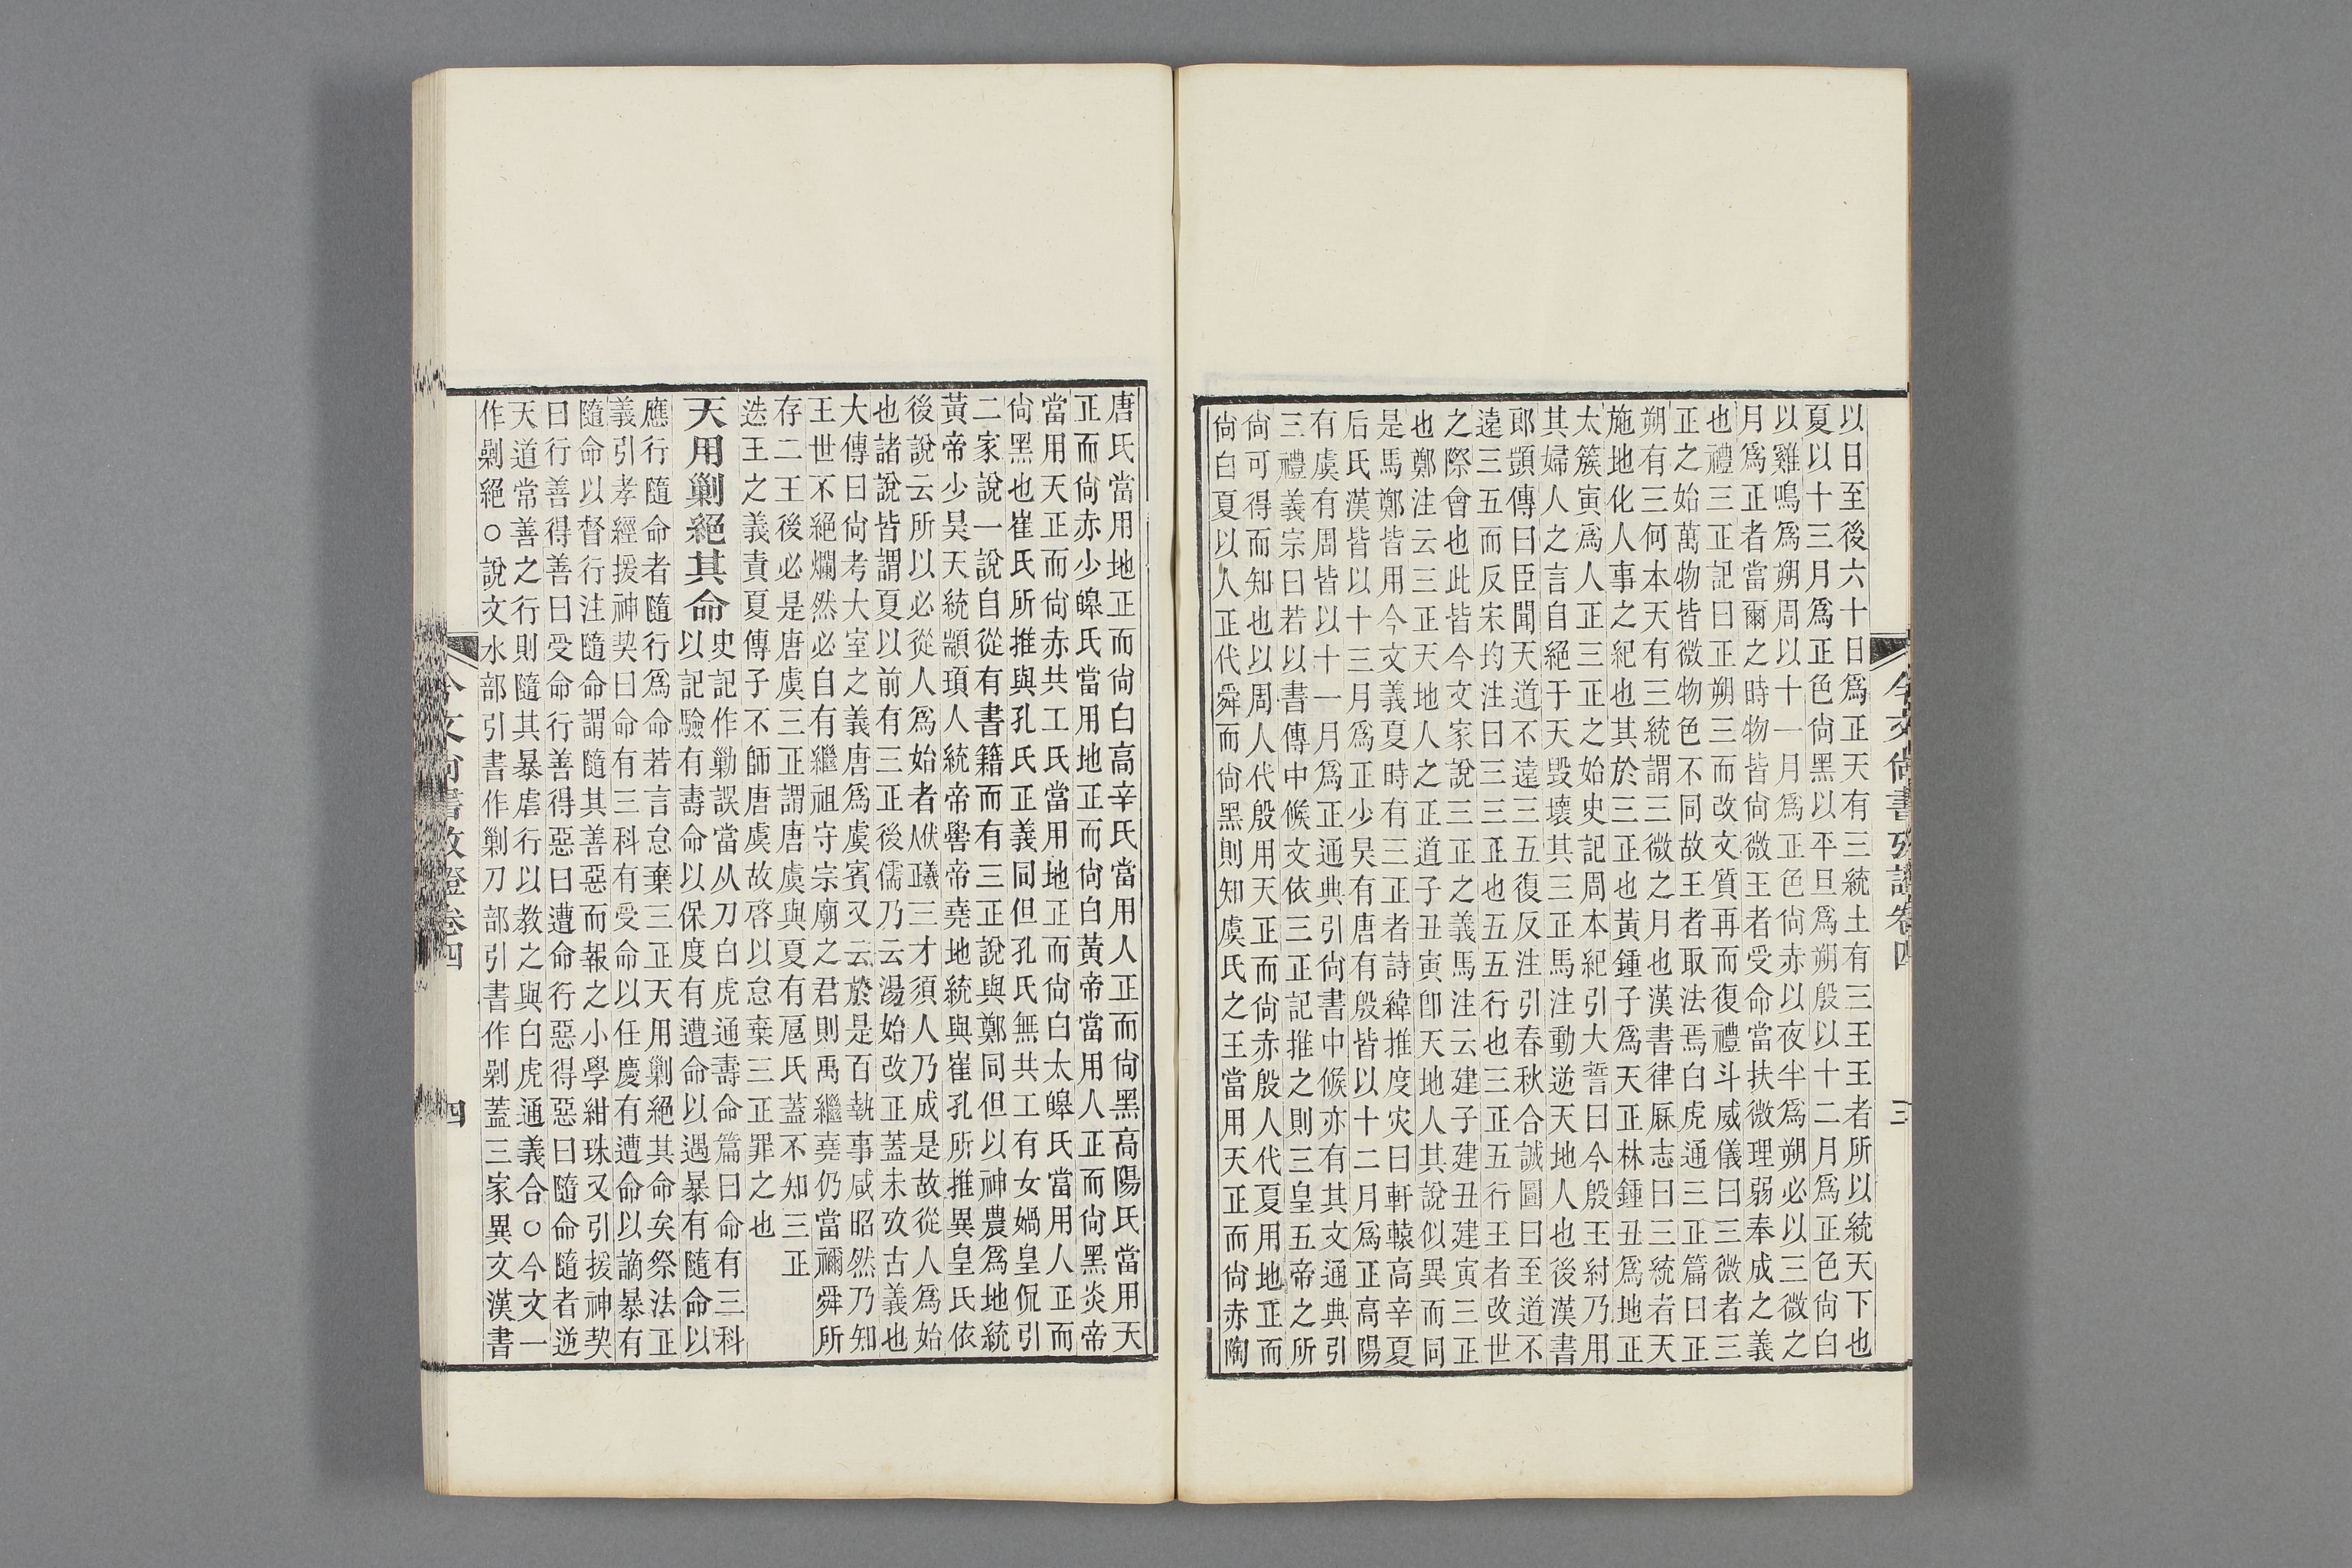 今文尚書攷證卷四
三
以日至後六十日爲正天有三統土有三王王者所以統天下也
夏以十三月爲正色尙黑以平旦爲朔殷以十二月爲正色尙白
以雞鳴爲朔周以十一月爲正色尙赤以夜半爲朔必以三微之
月爲正者當爾之時物皆尙微王者受命當扶微理弱奉成之義
也禮三正記曰正朔三而改文質再而復禮斗威儀曰三微者三
正之始萬物皆微物色不同故王者取法焉白虎通三正篇曰正
朔有三何本天有三統謂三微之月也漢書律厤志曰三統者天
施地化人事之紀也其於三正也黃鍾子爲天正林鍾丑爲地正
太簇寅爲人正三正之始史記周本紀引大誓曰今殷王紂乃用
其婦人之言自絕于天毀壞其三正馬注動逆天地人也後漢書
郎顗傳曰臣聞天道不遠三五復反注引春秋合誠圖曰至道不
遠三五而反宋均注曰三三正也五五行也三正五行王者改世
之際會也此皆今文家說三正之義馬注云建子建丑建寅三正
也鄭注云三正天地人之正道子丑寅卽天地人其說似異而同
是馬鄭皆用今文義夏時有三正者詩緯推度灾曰軒轅高辛夏
后氏漢皆以十三月爲正少昊有唐有殷皆以十二月爲正高陽
有虞有周皆以十一月爲正通典引尙書中候亦有其文通典引
三禮義宗曰若以書傳中候文依三正記推之則三皇五帝之所
尙可得而知也以周人代殷用天正而尙赤殷人代夏用地正而
尙白夏以人正代舜而尙黑則知虞氏之王當用天正而尙赤陶
唐氏當用地正而尙白高辛氏當用人正而尙黑高陽氏當用天
正而尙赤少皞氏當用地正而尙白黃帝當用人正而尙黑炎帝
當用天正而尙赤共工氏當用地正而尙白太皞氏當用人正而
尙黑也崔氏所推與孔氏正義同但孔氏無共工有女媧皇侃引
二家說一說自從有書籍而有三正說與鄭同但以神農爲地統
黃帝少昊天統顓頊人統帝嚳帝堯地統與崔孔所推異皇氏依
後說云所以必從人爲始者㳄䕏三才須人乃成是故從人爲始
也諸說皆謂夏以前有三正後儒乃云湯始改正蓋未攷古義也
大傳曰尙考大室之義唐爲虞賓又云於是百執事咸昭然乃知
王世不絕爛然必自有繼祖守宗廟之君則禹繼堯仍當禰舜所
存二王後必是唐虞三正謂唐虞與夏有扈氏蓋不知三正
迭王之義責夏傳子不師唐虞故啓以怠棄三正罪之也
天用剿絕其命
史記作勦誤當从刀白虎通壽命篇曰命有三科
以記驗有壽命以保度有遭命以遇暴有隨命以
應行隨命者隨行爲命若言怠棄三正天用剿絕其命矣祭法正
義引孝經援神契曰命有三科有受命以任慶有遭命以謫暴有
隨命以督行注隨命謂隨其善惡而報之小學紺珠又引援神契
曰行善得善曰受命行善得惡曰遭命行惡得惡曰隨命隨者逆
天道常善之行則隨其暴虐行以教之與白虎通義合○今文一
作剿絕○說文水部引書作剿刀部引書作剿蓋三家異文漢書
今文尚書攷證卷四
四